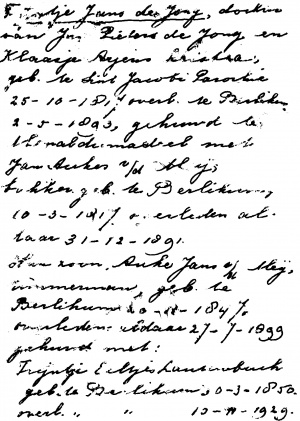 Jans de Jong, dochter
van Jn. Pieters de Jong en
Klaasje Arjens
geb. te Sint Jacobi Parochie
25-10-181 overl. te Berlikum
2-5-1893, gehuwd te
Menaldumadeel met
Jan Aukes v/d Meij
bakker geb. te Berlikum,
10-3-1817 overleden al-
daar 31-12-1891.
zoon, Auke Jans v/d Meij,
timmerman, geb. te
Berlikum 20-11-1847,
overleden aldaar 27-7-1899
gehuwd met:
Trijntje Eeltjes Lautenbach
geb. te Berlikum, 0-3-1850.
overl. " " 10-11-1929.